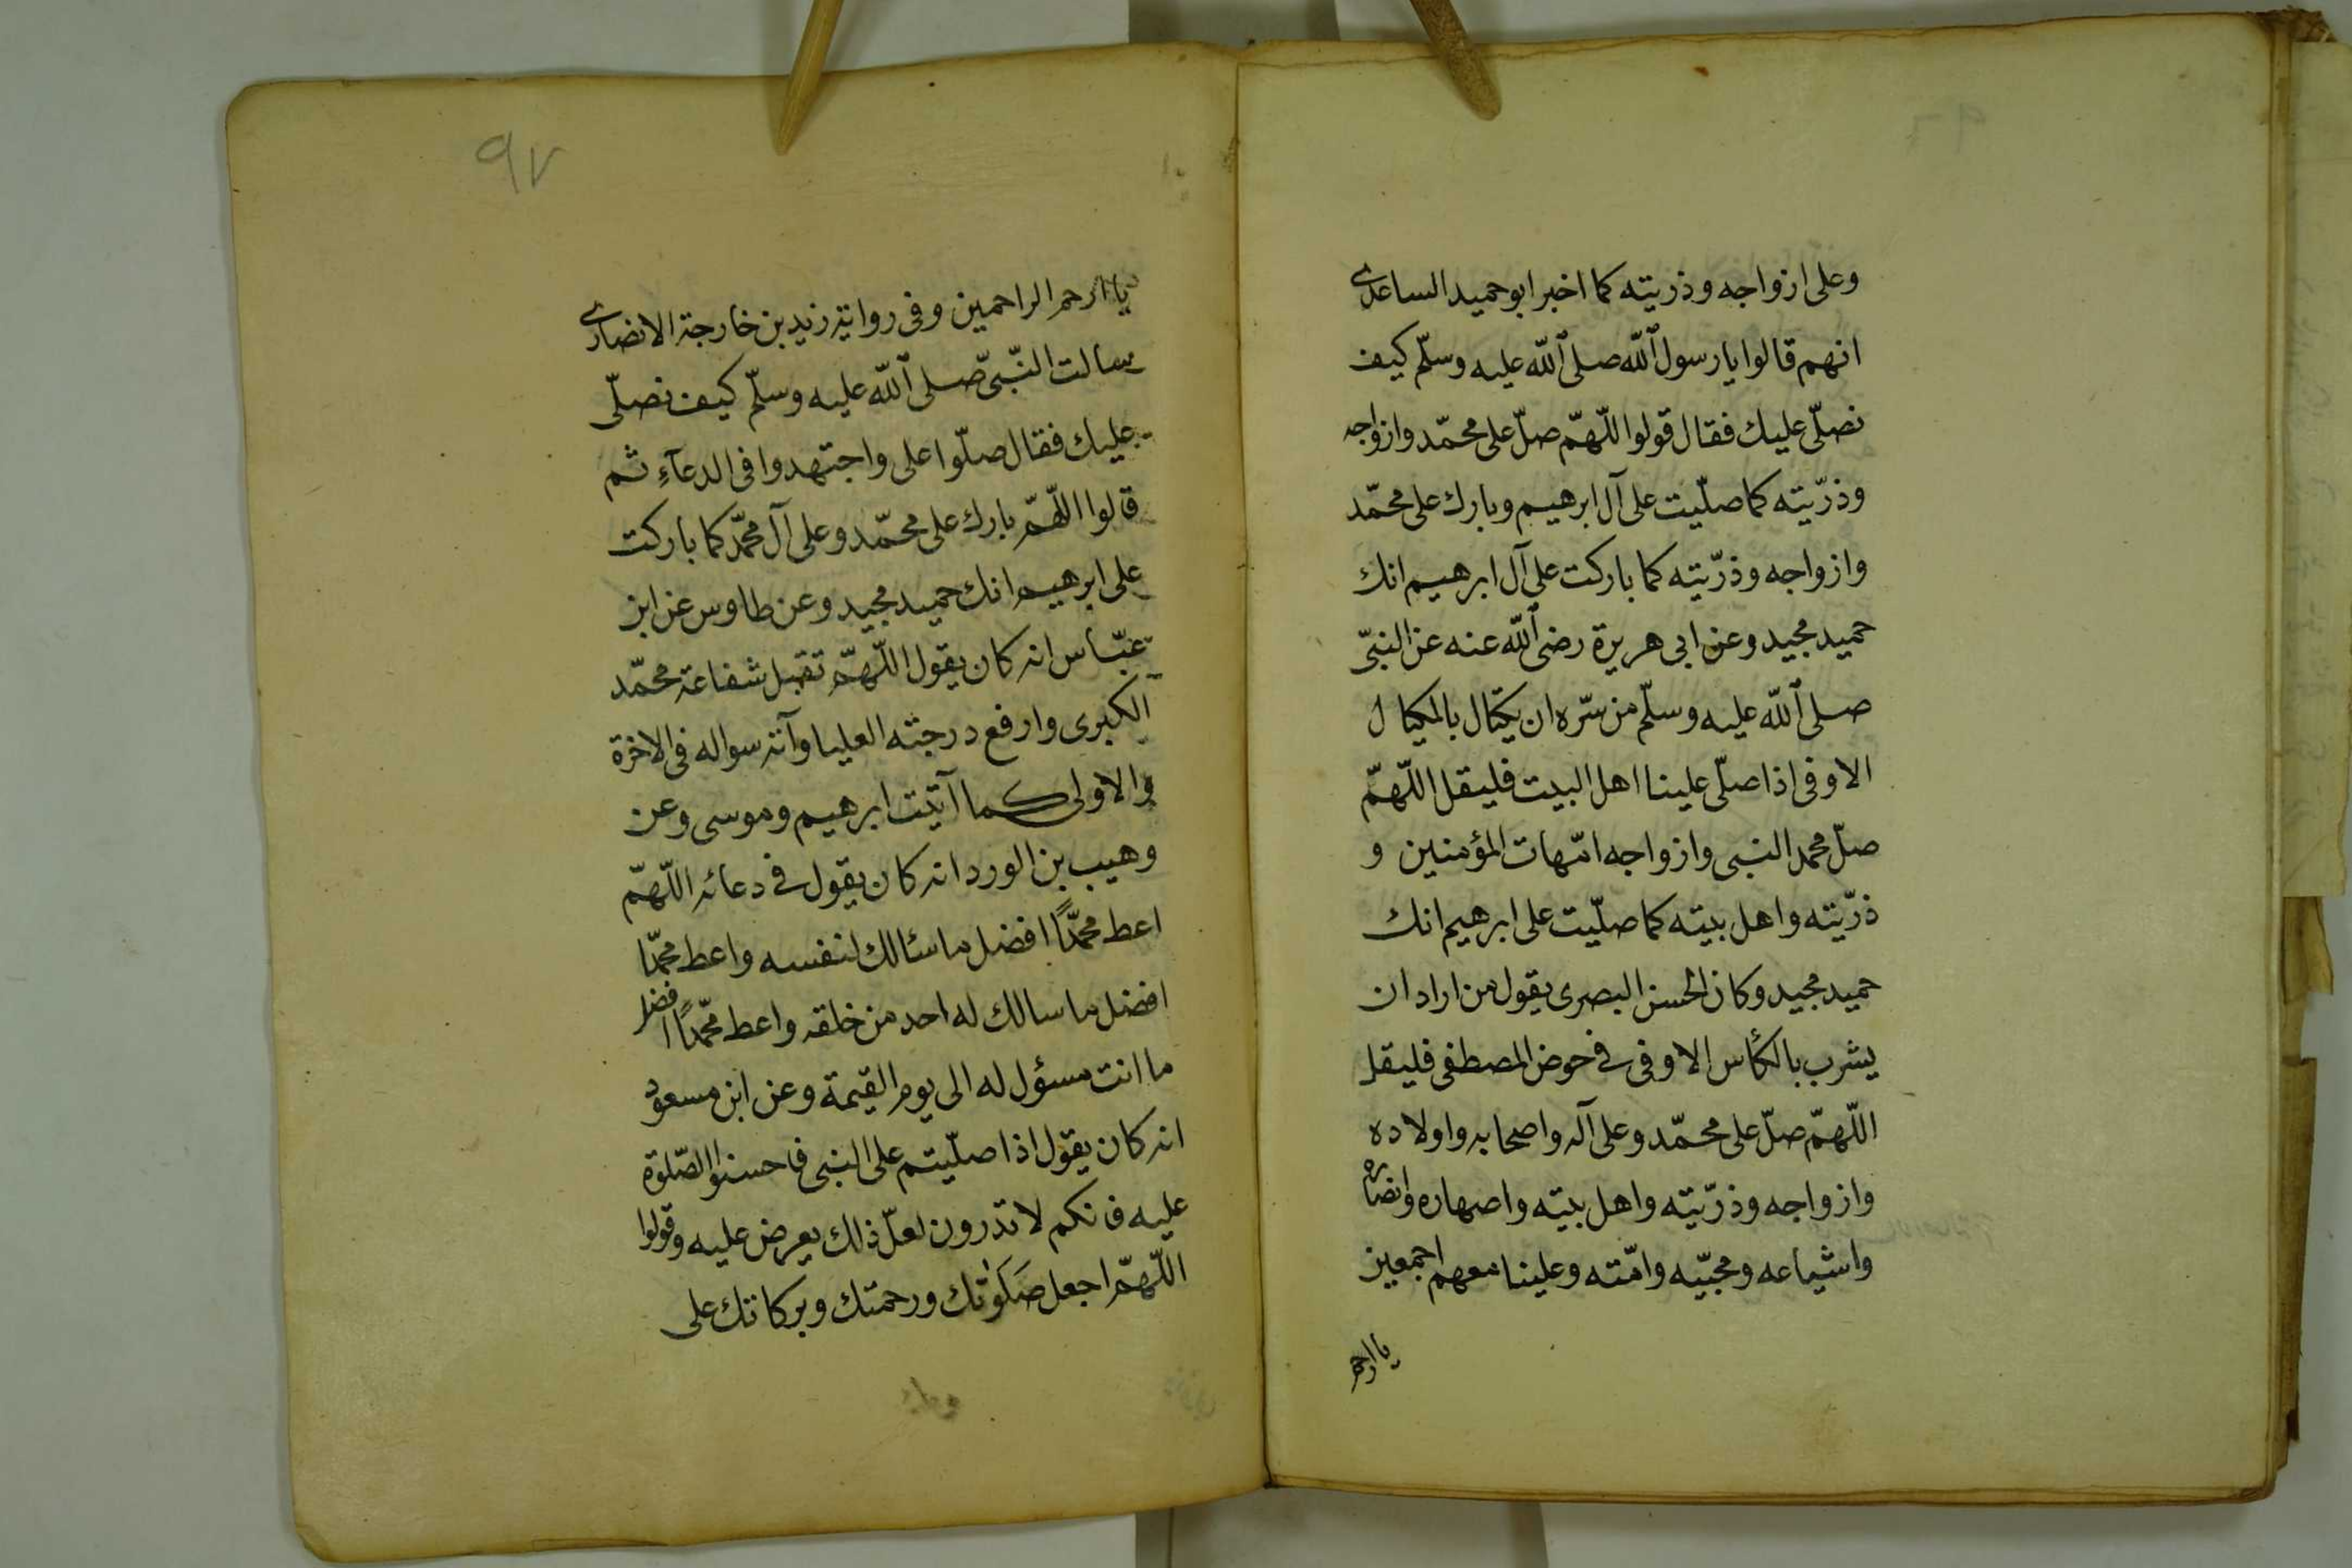 وعلى ازواجه وذريته كما اخبر ابو حميد الساعدى
انهم قالوا يا رسول الله صلى الله عليه وسلّم كيف
نصلّى عليك فقال قولوا اللّهمّ صلّ على محمّد وازواجه
وذرّيته كما صلّيت على آل ابرهيم وبارك على محمّد
وازواجه وذرّيته كما باركت على آل ابرهيم انك
حميد مجيد وعن ابى هريرة رضى الله عنه عن النبىّ
صلى الله عليه وسلّم من سرّه ان يكتال بالمكيال
الاوفى اذا صلّى علينا اهل البيت فليقل اللّهمّ
صلّ محمد النبى وازواجه امّهات المؤمنين و
ذرّيته واهل بيته كما صلّيت على ابرهيم انك
حميد مجيد وكان الحسن البصرى يقول من اراد ان
يشرب بالكأس الاوفى فى حوض المصطفى فليقل
اللّهمّ صلّ على محمّد وعلى آله واصحابه واولاده
وازواجه وذرّيته واهل بيته واصهاره وانصاره
واشياعه ومحبّيه وامّته وعلينا معهم اجمعين
يا ارحم
٩٧
يا ارحم الراحمين وفى رواية زيد بن خارجة الانصارى
سالت النّبىّ صلى الله عليه وسلّم كيف نصلّى
عليك فقال صلّوا على واجتهدوا فى الدعآءِ ثم
قالوا اللّهمّ بارك على محمّد وعلى آل محمّد كما باركت
على ابرهيم انك حميد مجيد وعن طاوس عن ابن
عبّاس انه كان يقول اللّهمّ تقبل شفاعة محمّد
الكبرى وارفع درجته العليا وآته سواله فى الاخرة
والاولى كما آتيت ابرهيم وموسى وعن
وهيب بن الورد انه كان يقول فى دعائه اللّهمّ
اعط محمّدًا افضل ما سئالك لنفسه واعط محمّدا
افضل ما سالك له احد من خلقه واعط محمّدًا افضل
ما انت مسؤل له الى يوم القيمة وعن ابن مسعود
انه كان يقول اذا صلّيتم على النبى فاحسنوا الصّلوة
عليه فانكم لا تدرون لعلّ ذلك يعرض عليه وقولوا
اللّهمّ اجعل صَلَوٰتك ورحمتك وبركاتك على